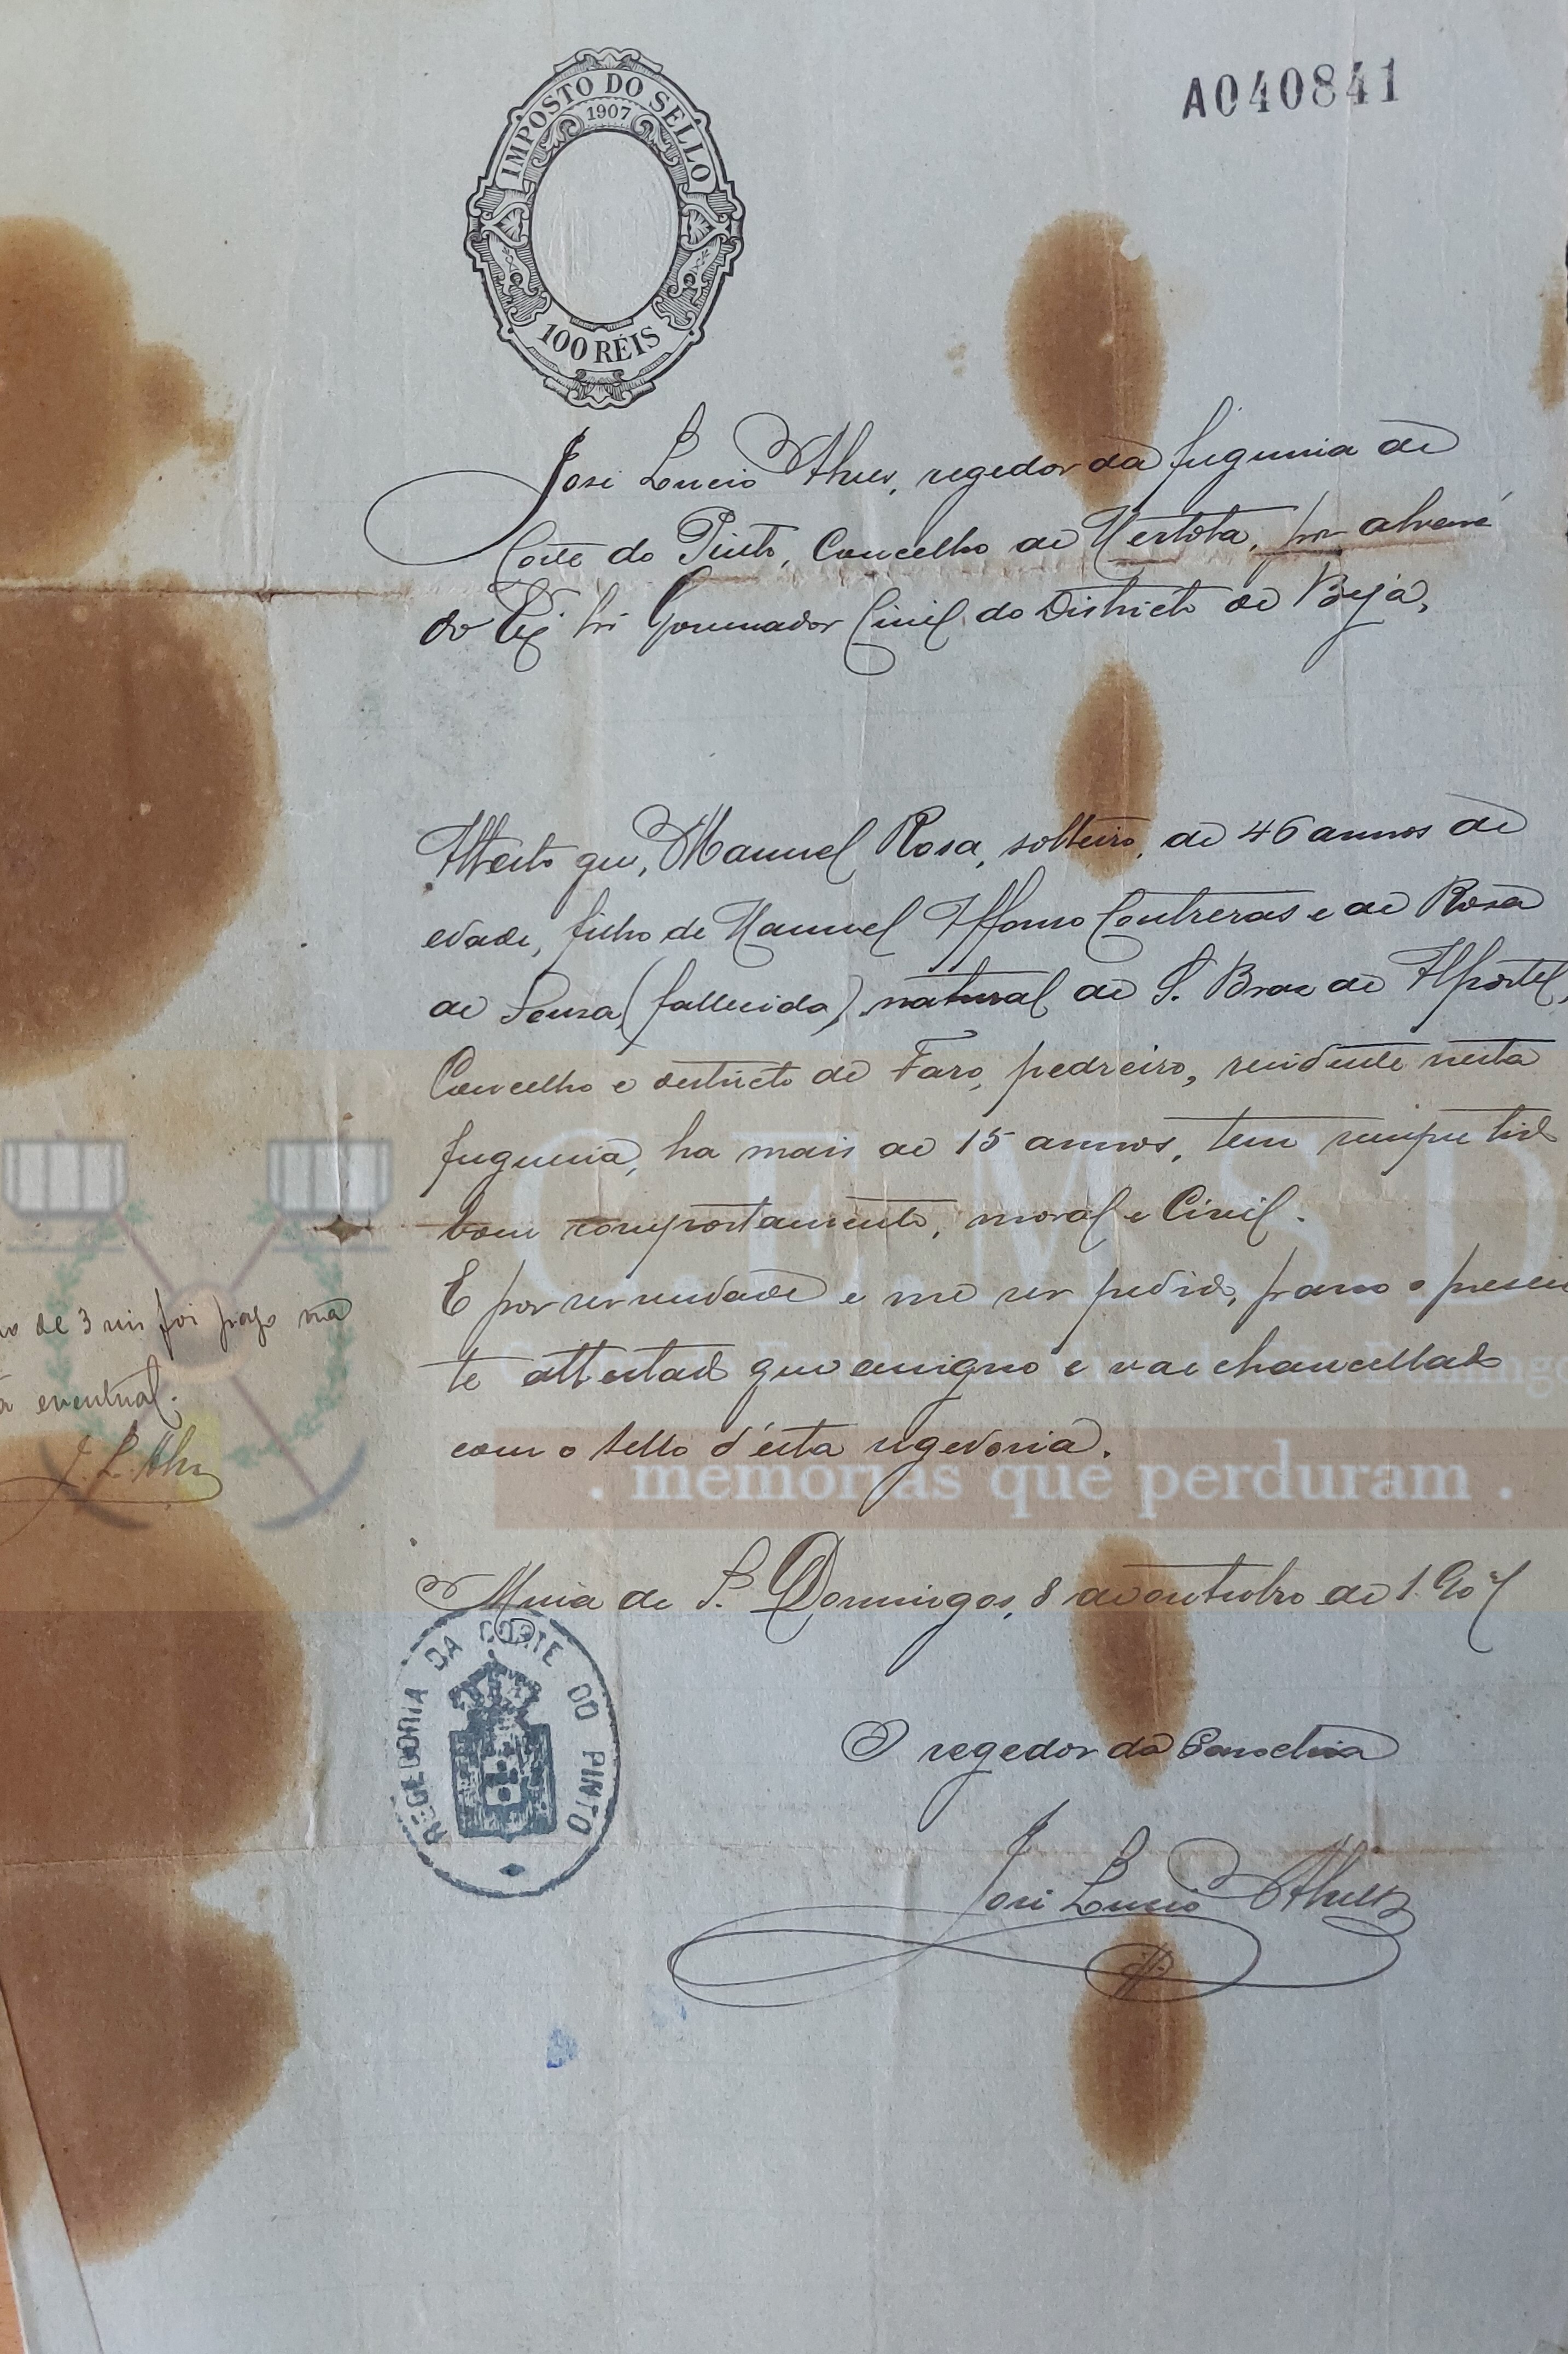 IMPOSTO DO SELLO
1907
100 RÉIS
A040841
José Lucio Alves, regedor da freguezia de
Corte do Pinto, Concelho de Mertola, por alvará
do Exº Snr Governador Civil do Districto de Beja,
Attesto que, Manuel Rosa, solteiro, de 46 annos de
edade, filho de Manuel Affonso Contreras e de Rosa
de Souza (fallecida), natural de S. Braz de Alportel,
Concelho e districto de Faro, pedreiro, residente nesta
freguezia, ha mais de 15 annos, tem sempre tido
bom comportamento, moral e Civil.
E por ser verdade e me ser pedido, passo o presen
te attestado que assigno e vae chancellado
com o sello d'esta regedoria.
de 3 reis foi pago na
eventual.
J. L. Alves
C.E.M.S.D
. memorias que perduram .
Mina de S. Domingos, 8 de outubro de 1.907
REGEDORIA DA CORTE DO PINTO
O regedor da Parochia
José Lucio Alves